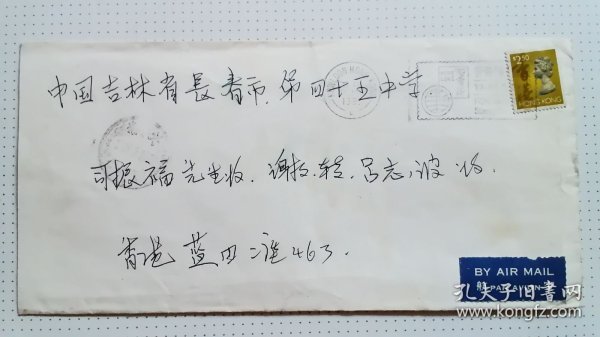 中国吉林省長春市.第四十五中学
$2.50
香港
HONG KONG
司振福先生收.谢谢.转.吕志波收.
香港 蓝田 邨463.
BY AIR MAIL
PAR AVION
孔夫子旧书网
www.kongfz.com